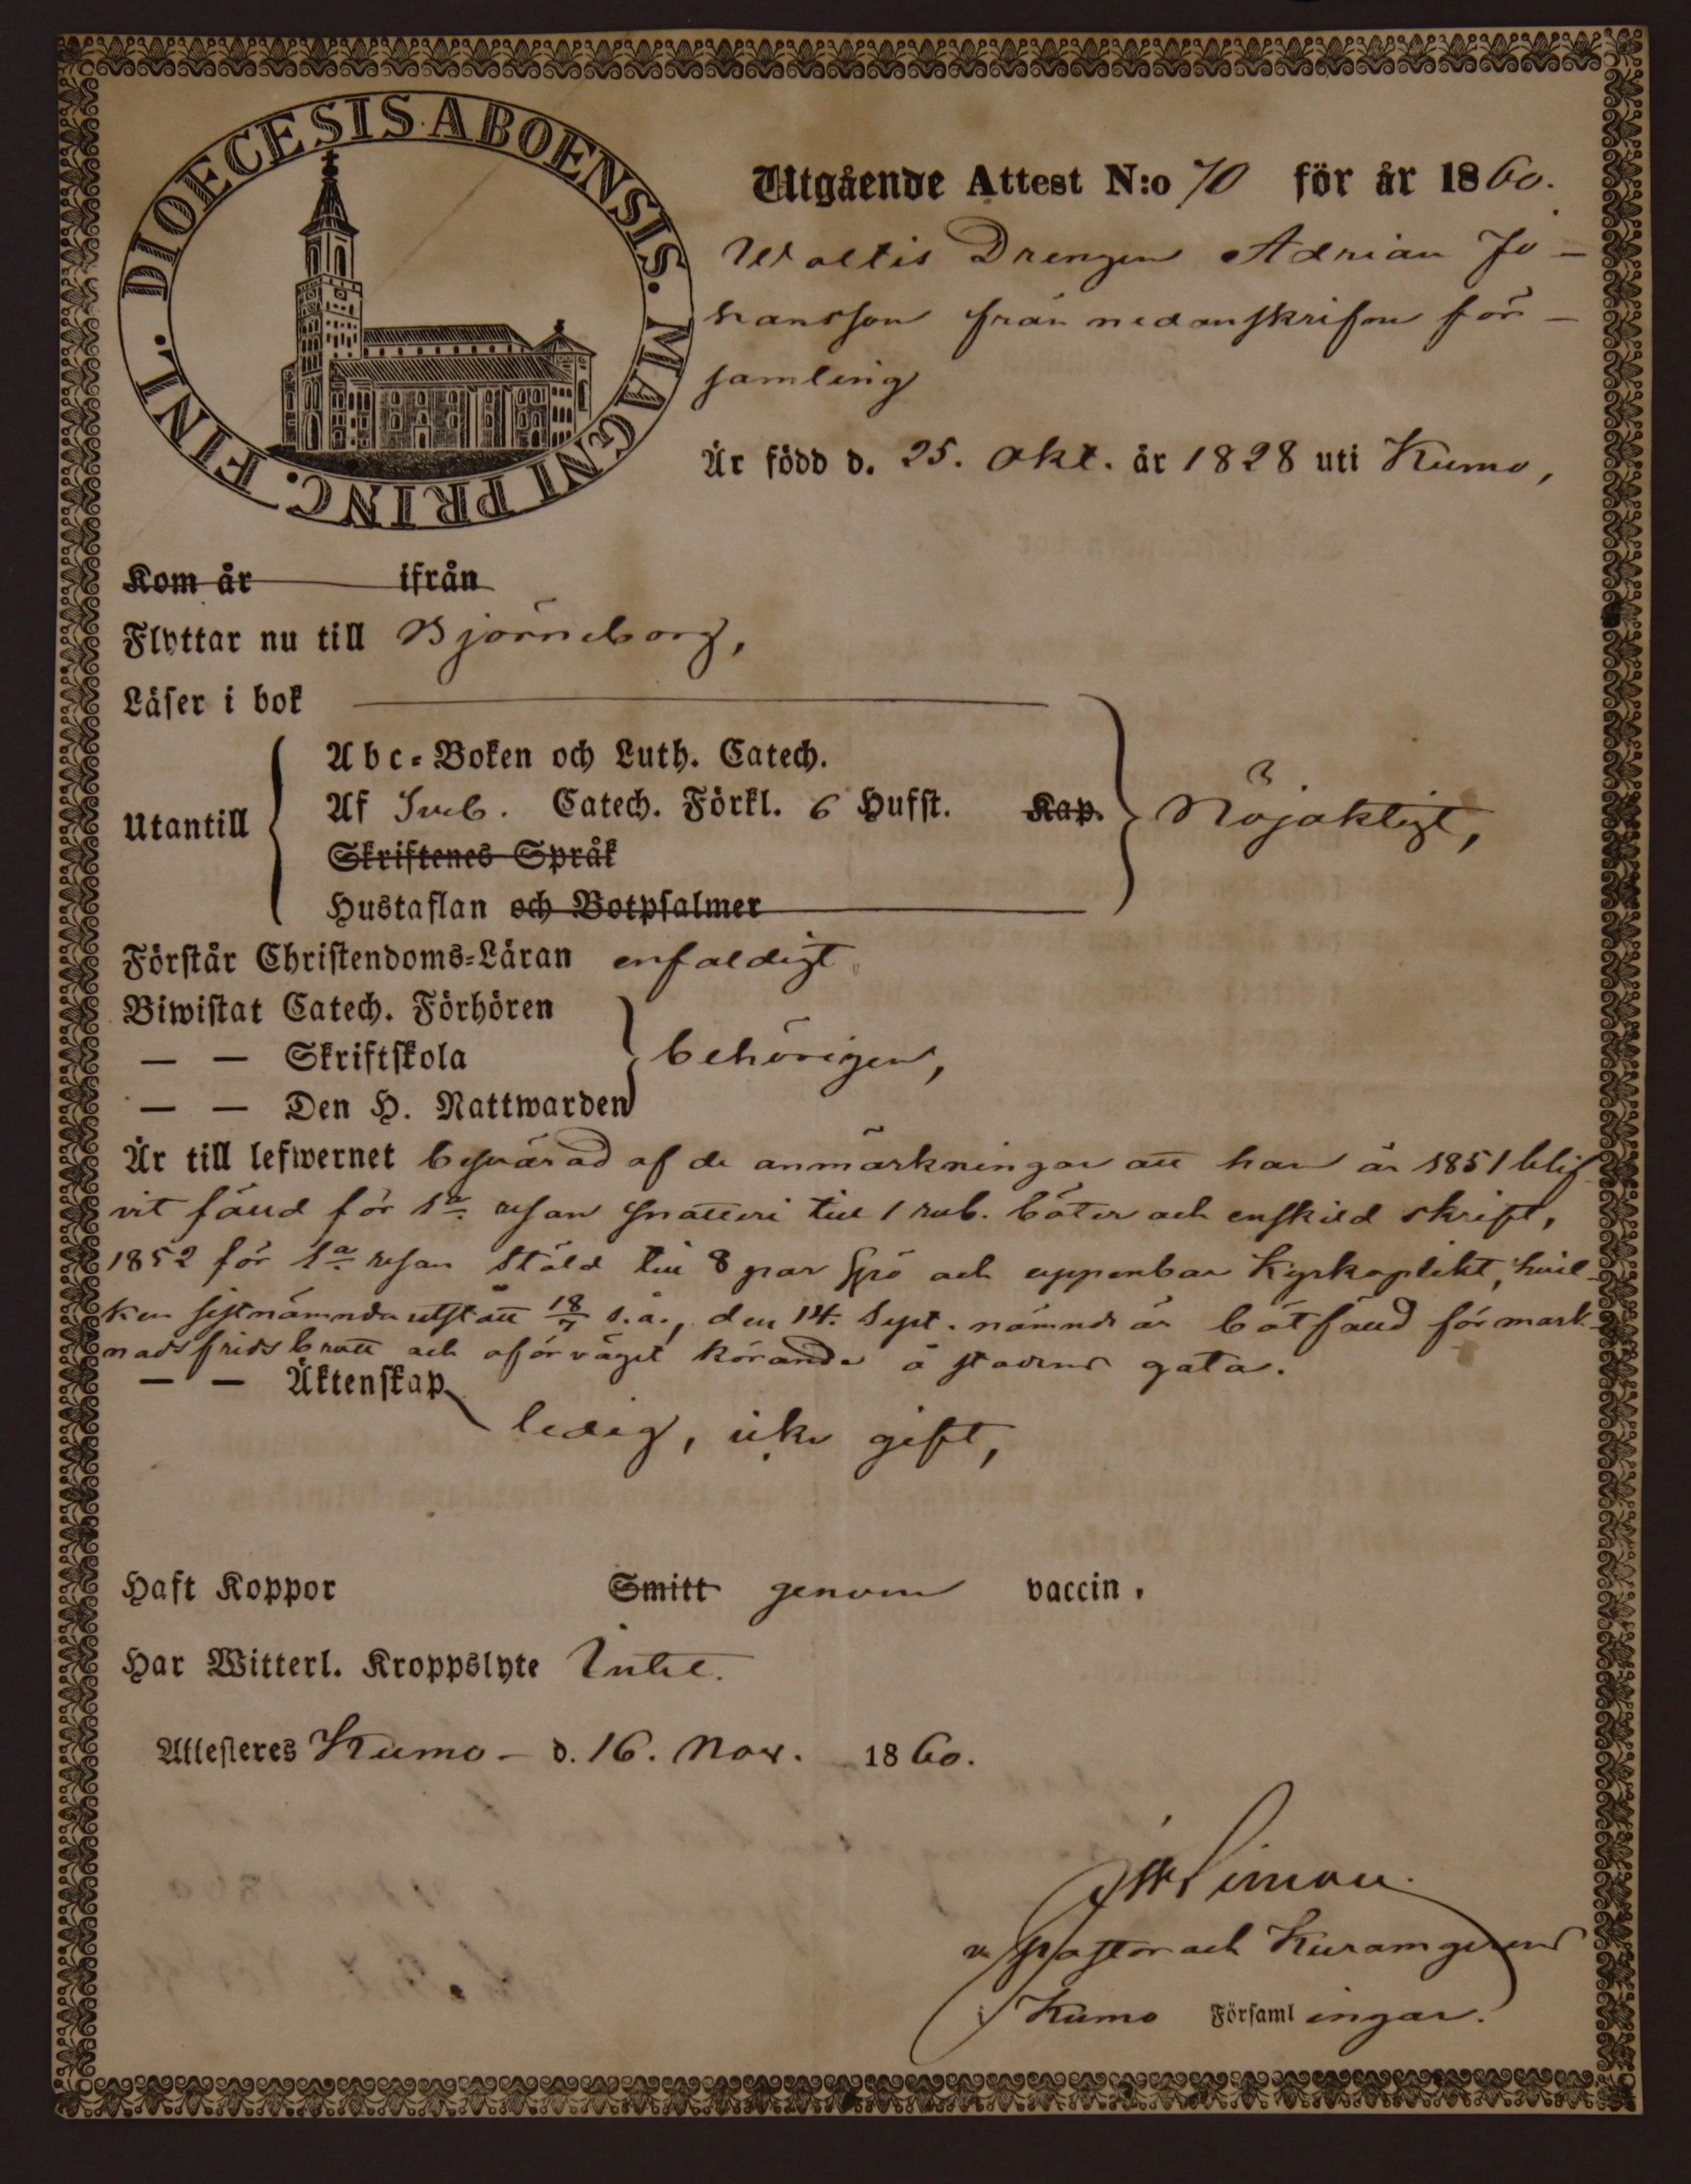 DIOECESIS ABOENSIS. MAGNI PRINC. FINL.
Utgående Attest N:o 70 för år 1860.
Drengen Adrian Jo-
hansson från nedanskrifne för-
samling
Är född d. 25. Okt. år 1828 uti Kumo,
Kom år ifrån
Flyttar nu till Björneborg,
Läser i bok
Abc-Boken och Luth. Catech.
Utantill Af Sveb. Catech. Förkl. 6 Hufst. Kap. Nöjaktigt,
Skriftenes Språk
Hustaflan och Botpsalmer
Förstår Christendoms-Läran enfaldigt
Biwistat Catech. Förhören
— — Skriftskola behörigen,
— — Den H. Nattwarden
Är till lefwernet besvärad af de anmärkningar att han år 1851 blif-
vit fälld för 1a resan snatteri till 1 rub. böter och enskild skrift,
1852 för 1a resan stöld till 8 par spö och uppenbar Kyrkoplikt, hvil-
ken sistnämnda utstått 18/7 s.å., den 14. Sept. nämnde år botfälld för mark-
nadsfridsbrott och oförväget körande å stadens gata.
— — Äktenskap
ledig, icke gift,
Haft Koppor Smitt genom vaccin.
Har Witterl. Kroppslyte Intet.
Attesteres Kumo - d. 16. Nov. 1860.
v Pastor och
i Kumo Församlingar.